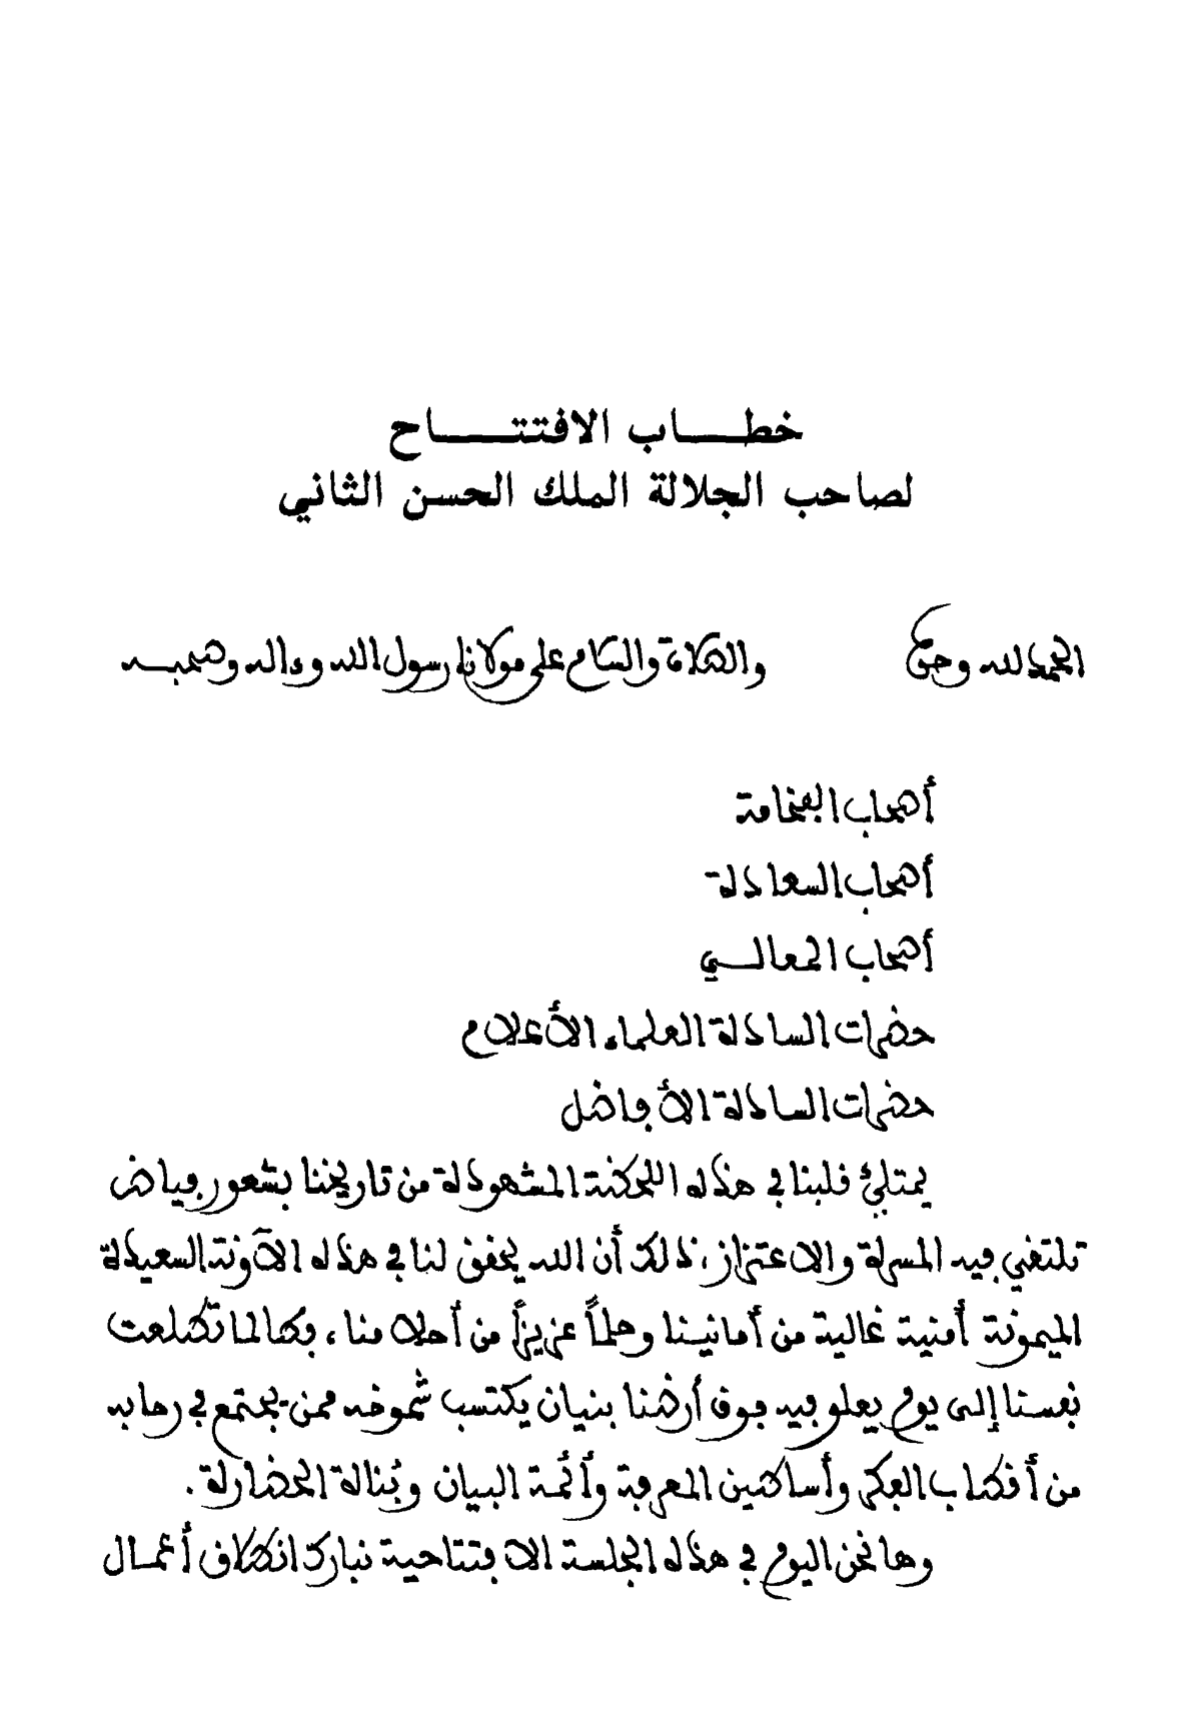 خطاب الافتتاح
لصاحب الجلالة الملك الحسن الثاني
الحمد لله وحده والصلاة والسلام على مولانا رسول الله وءاله وصحبه
أصحاب الفخامة
أصحاب السعادة
أصحاب المعالي
حضرات السادة العلماء الأعلام
حضرات السادة الأفاضل
يمتلئ قلبنا في هذه اللحظة المشهودة من تاريخنا بشعور فياض
تلتقي فيه المسرة والاعتزاز، ذلك أن الله يحقق لنا في هذه الآونة السعيدة
الميمونة أمنية غالية من أمانينا وحلماً عزيزاً من أحلامنا، فطالما تطلعت
نفسنا إلى يوم يعلو فيه فوق أرضنا بنيان يكتسب شموخه ممن يجتمع في رحابه
من أقطاب الفكر وأساطين المعرفة وأئمة البيان وبُناة الحضارة.
وها نحن اليوم في هذه الجلسة الافتتاحية نبارك انطلاق أعمال